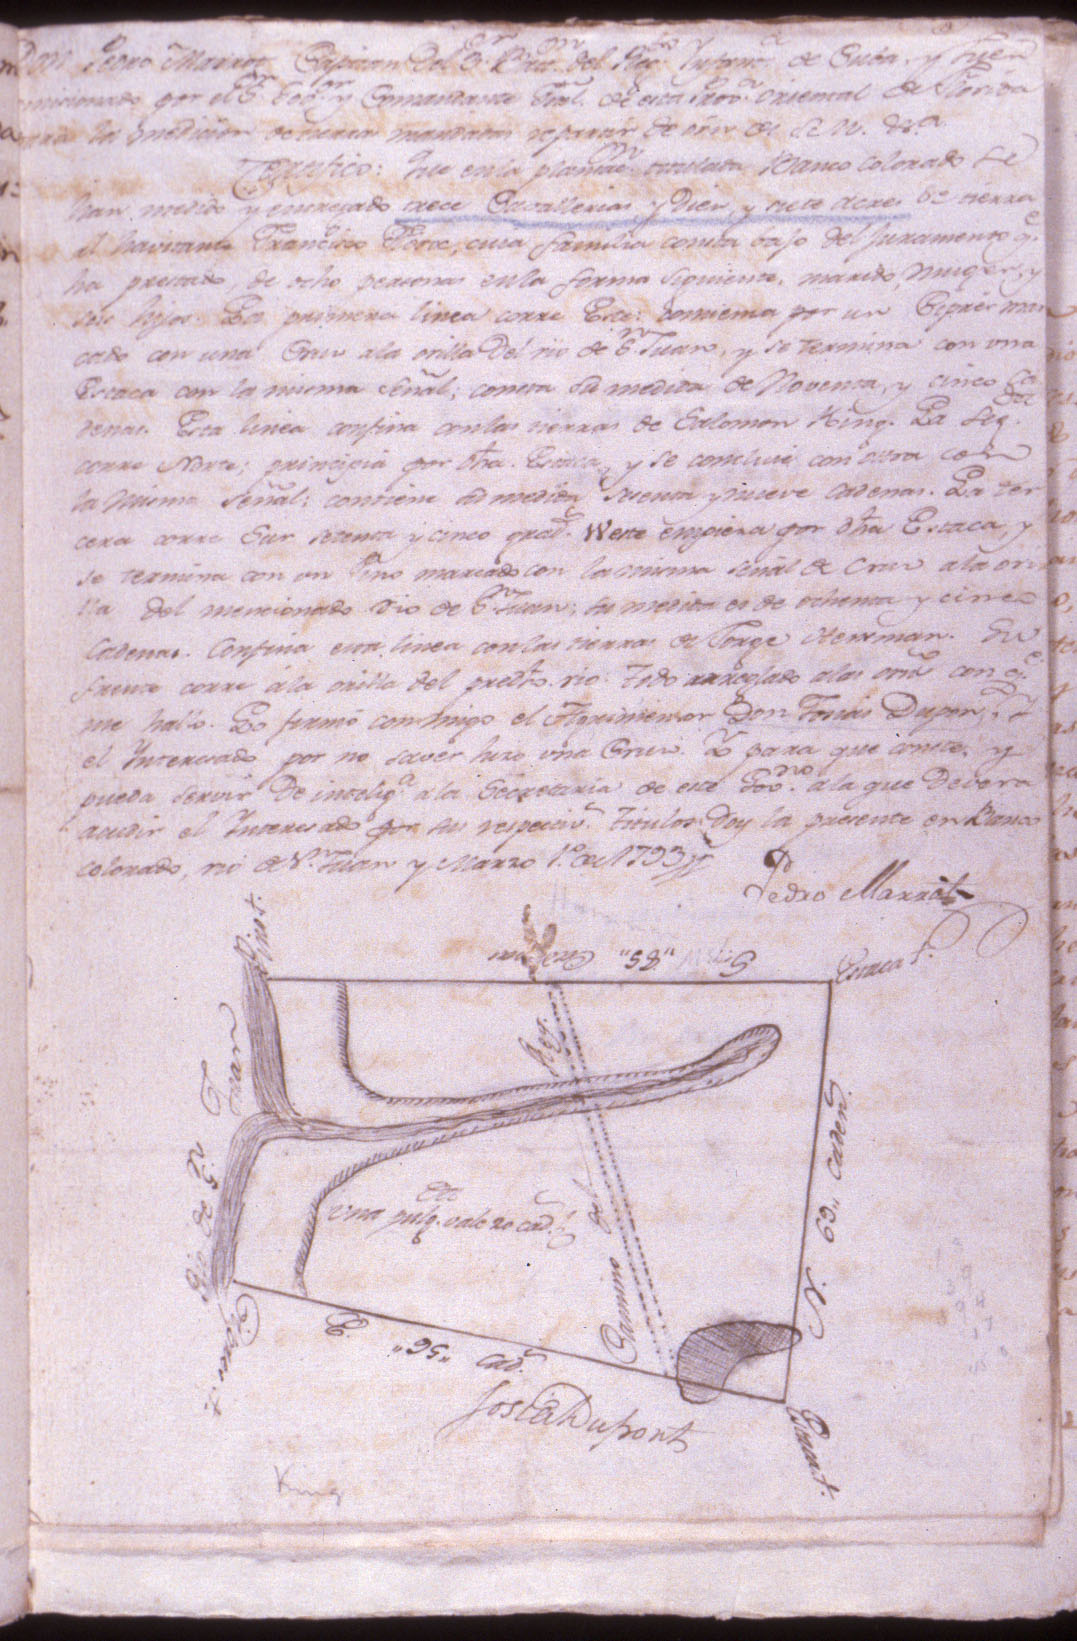 Don Pedro Marrot Capitan Del 3.er Bat.on del Reg.to Ynfant.a de Cuba, y Juez
comicionado por el S.or Gov.or y Comandante Gral. de esta Prov.a Oriental de Florida
para la medicion de tierras mandadas repartir de orn de S. M. &c.a
Certifico: Que en la plantac.on titulada Blanco Colorado se
han medido y entregado trece Cavallerias y Diez, y siete acres de tierra
al havitante Francisco Flore, cuia familia consta bajo del Juramento q.e
ha prestado, de ocho personas en la forma siguiente, marido, Muger, y
seis hijos. La primera linea corre Este: comienza por un Ciprés mar
cado con una Cruz ala orilla Del rio de S.n Juan, y se termina con una
Estaca con la misma Señal; consta su medida de Noventa, y cinco Ca
denas. Esta linea confina con las tierras de Salomon King. La Seg.da
corre Norte; principia por dha. Estaca, y se concluie con otra con
la Misma Señal: contiene su medida sesenta y nueve Cadenas. La ter
cera corre Sur setenta y cinco grad.s Weste empieza por dha Estaca, y
se termina con un Pino marcado con la misma señal de Cruz ala ori
lla del mencionado rio de S.n Juan; su medida es de ochenta y cinco
Cadenas. Confina esta linea con las tierras de Jorge Herrman. Su
frente corre ala orilla del predho. rio: Todo arreglado alas orns con q.e
me hallo. Lo firmó conmigo el Agrimensor Don Josias Dupon, y
el Ynteresado por no saver hizo una Cruz. Y para que conste, y
pueda servir De intelig.a ala Secretaria de este Gov.no ala que Devera
acudir el Ynteresado por sus respectiv.s titulos Doy la presente en Blanco
Colorado, rio de S.n Juan y Marzo 1.o de 1793
Pedro Marrot
Pino †.
S. 75 W "85"
Estaca †.
Rio de S.n Juan
Rey.
Camino del
Esc
una pulg. vale 20 cad.s
N. 69" Caden.s
E "95" Cad.s
Cipres †
Josiah Dupont
Estaca †.
King